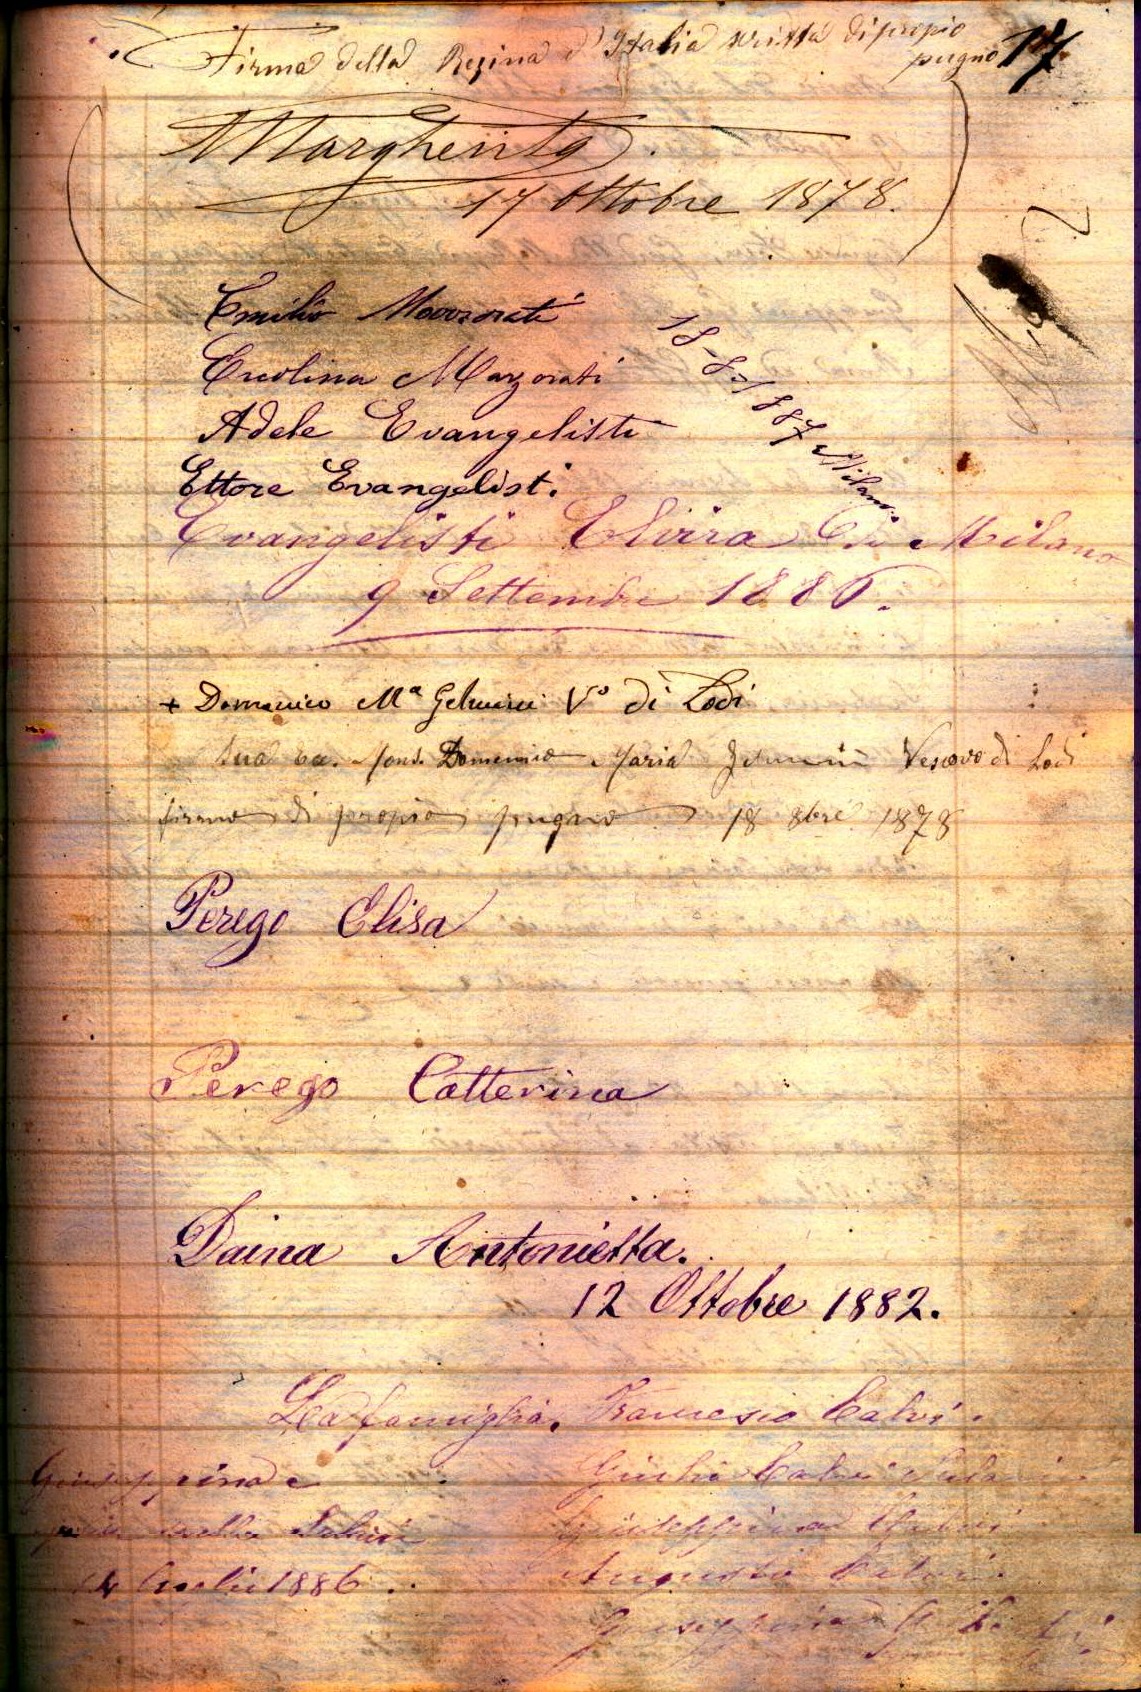 Firma della Regina d'Italia scritta di proprio
pugno 17
Margherita
17 Ottobre 1878.
Emilio
Ercolina Marzorati
Adele Evangelisti
Ettore Evangelisti
18-8-1887 Milano.
Evangelisti Elvira Di Milano
9 Settembre 1886.
+ Domenico Mª Gelmini Vº di Lodi
Domenico Maria Gelmini Vescovo di Lodi
firma di proprio pugno 18 8bre 1878
Perego Elisa
Perego Catterina
Daina Antonietta.
12 Ottobre 1882.
La famiglia. Francesco Calvi.
Giuseppina e Giulio Calvi
Giuseppina Calvi
14 Luglio 1886 .. Augusto Calvi.
Giuseppina